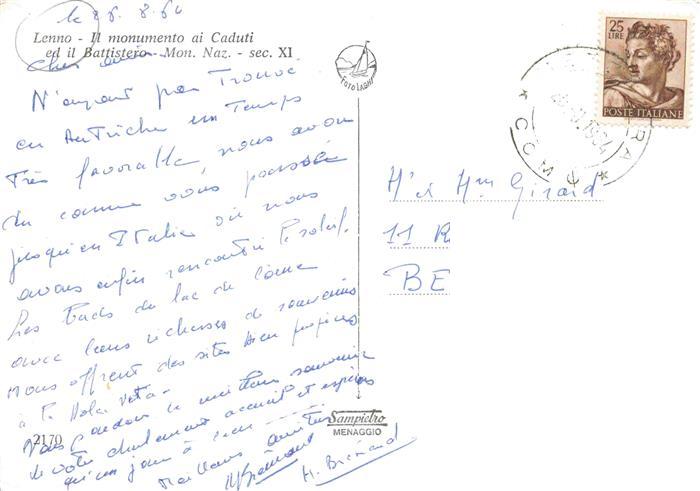 le 26.8.64
Lenno - Il monumento ai Caduti
ed il Battistero - Mon. Naz. - sec. XI
Cher amis
N'ayant pas trouvé
en Autriche un temps
très favorable nous avons
du comme vous passer
jusqu'en Italie où nous
avons enfin rencontré le soleil.
Les bords du lac de Come
avec leurs richesses de souvenirs
nous offrent des sites bien propices
à la Dolce Vita -
Nous gardons le meilleur souvenir
de votre charmant accueil et espérons
qu'un jour à
Meilleures amitiés
H. Brémard
FOTO LAGHI
25
LIRE
POSTE ITALIANE
1964
COMO
Mr et Mme Girard
11 R
BE
2170
Sampietro
MENAGGIO